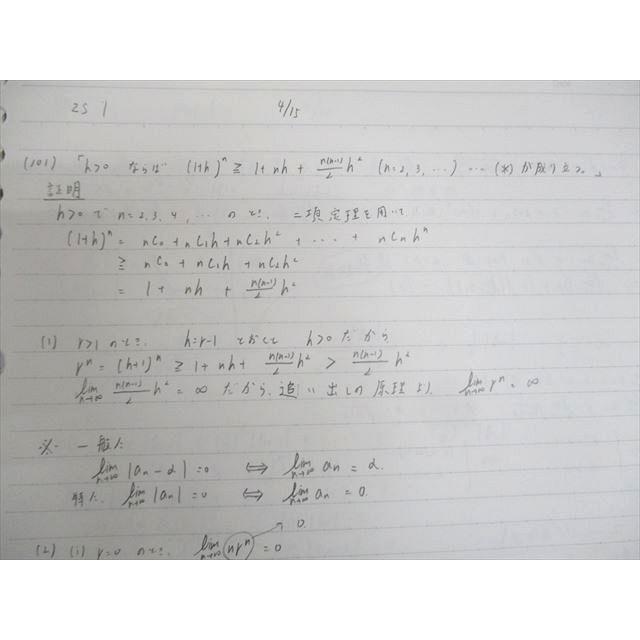 2S 1 4/15
(101) 「h>0 ならば (1+h)^n ≧ 1+nh+ n(n-1)/2 h^2 (n=2,3,…) … (*) が成り立つ。」
証明
h>0 で n=2,3,4,… のとき. 二項定理を用いて
(1+h)^n = nC0 + nC1h + nC2h^2 + … + nCnh^n
≧ nC0 + nC1h + nC2h^2
= 1 + nh + n(n-1)/2 h^2
(1) r>1 のとき. h=r-1 とおくと h>0 だから
r^n = (h+1)^n ≧ 1+nh+ n(n-1)/2 h^2 > n(n-1)/2 h^2
lim n→∞ n(n-1)/2 h^2 = ∞ だから、追い出しの原理より. lim n→∞ r^n = ∞
※ 一般に
lim n→∞ |an-α|=0 ⇔ lim n→∞ an = α.
特に. lim n→∞ |an|=0 ⇔ lim n→∞ an = 0.
0
(2) (i) r=0 のとき. lim n→∞ nr^n = 0